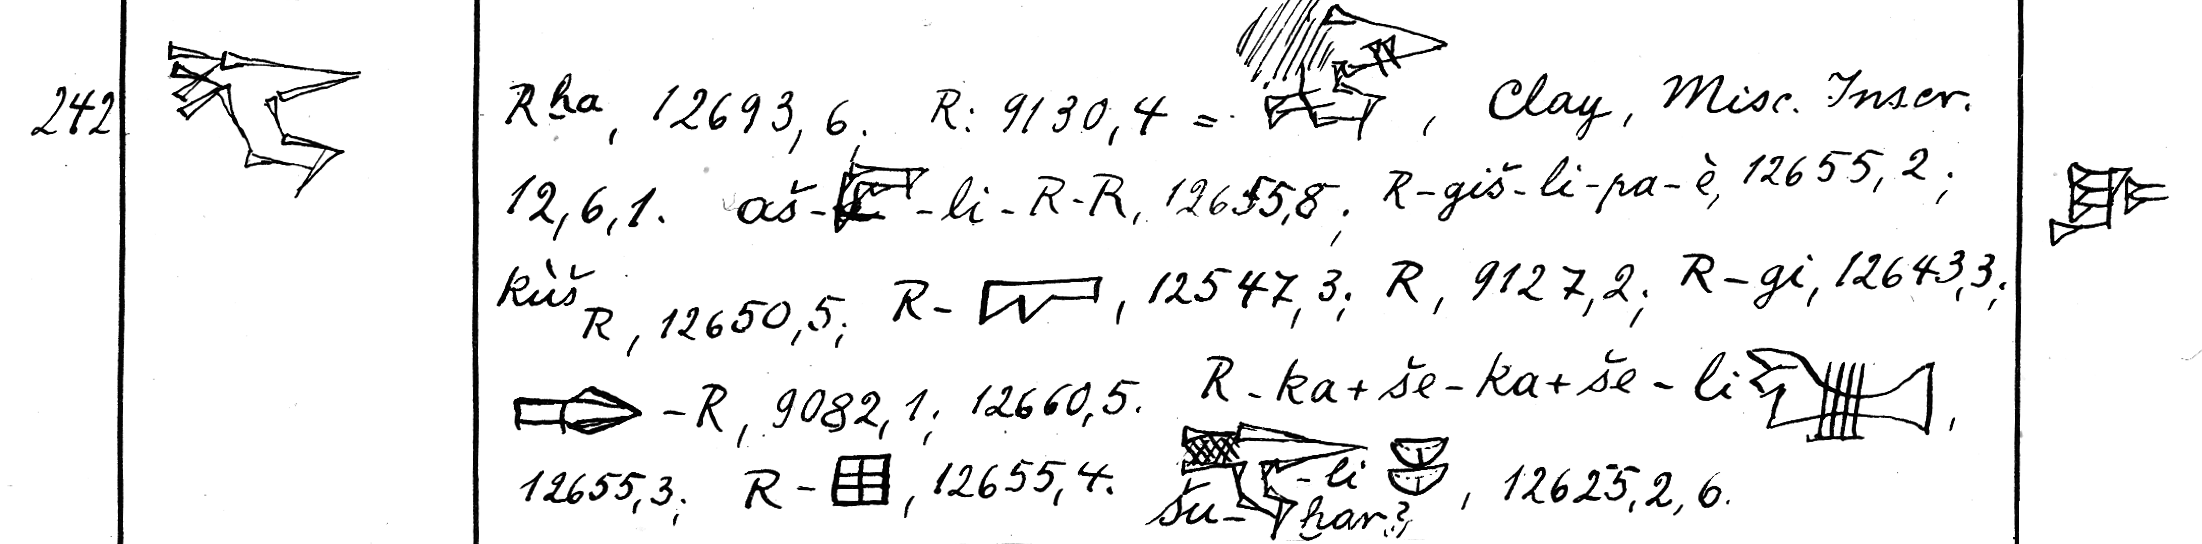 242 Rḫa, 12693, 6. R: 9130, 4 = , Clay, Misc. Inscr.
12, 6, 1. aš- -li-R-R, 12655, 8; R-giš-li-pa-è, 12655, 2;
kùš R, 12650, 5; R- , 12547, 3; R, 9127, 2; R-gi, 12643, 3;
-R, 9082, 1; 12660, 5. R-ka+še-ka+še-li ,
12655, 3; R- , 12655, 4. -li , 12625, 2, 6.
šu- ḫar?;